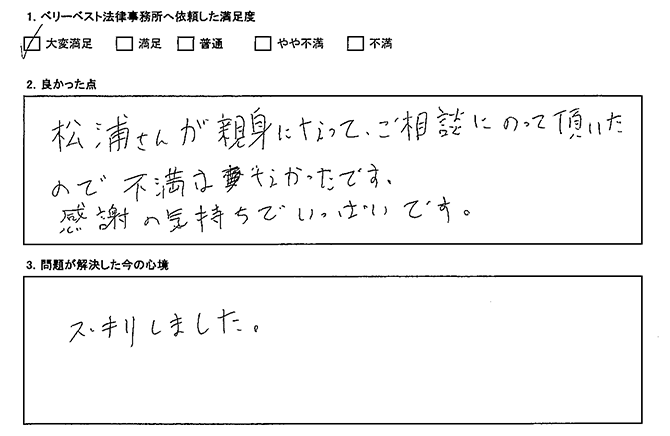 1. ベリーベスト法律事務所へ依頼した満足度
大変満足 満足 普通 やや不満 不満
2. 良かった点
松浦さんが親身になって、ご相談にのって頂いた
ので不満はなかったです、
感謝の気持ちでいっぱいです。
3. 問題が解決した今の心境
スッキリしました。